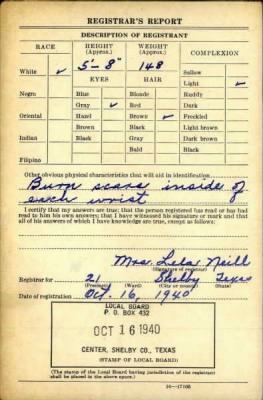 REGISTRAR'S REPORT
DESCRIPTION OF REGISTRANT
RACE HEIGHT (Approx.) WEIGHT (Approx.) COMPLEXION
White ✓ 5'-8" 148 Sallow
EYES HAIR Light ✓
Negro Blue Blonde Ruddy
Gray ✓ Red Dark
Oriental Hazel Brown ✓ Freckled
Brown Black Light brown
Indian Black Gray Dark brown
Bald Black
Filipino
Other obvious physical characteristics that will aid in identification
Burn scars inside of
each wrist
I certify that my answers are true; that the person registered has read or has had
read to him his own answers; that I have witnessed his signature or mark and that
all of his answers of which I have knowledge are true, except as follows:
Mrs. Lela Neill
(Signature of registrar)
Registrar for 21 Shelby Texas
(Precinct) (Ward) (City or county) (State)
Date of registration Oct. 16, 1940
LOCAL BOARD
P. O. BOX 432
OCT 16 1940
CENTER, SHELBY CO., TEXAS
(STAMP OF LOCAL BOARD)
(The stamp of the Local Board having jurisdiction of the registrant
shall be placed in the above space.)